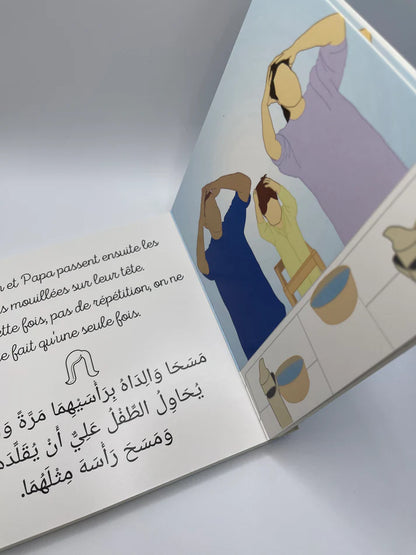 et Papa passent ensuite les
mouillées sur leur tête.
fois, pas de répétition, on ne
fait qu'une seule fois.
مَسَحَا وَالِدَاهُ بِرَأْسَيْهِمَا مَرَّةً
يُحَاوِلُ الطِّفْلُ عَلِيٌّ أَنْ
وَمَسَحَ رَأْسَهُ مِثْلَهُمَا.